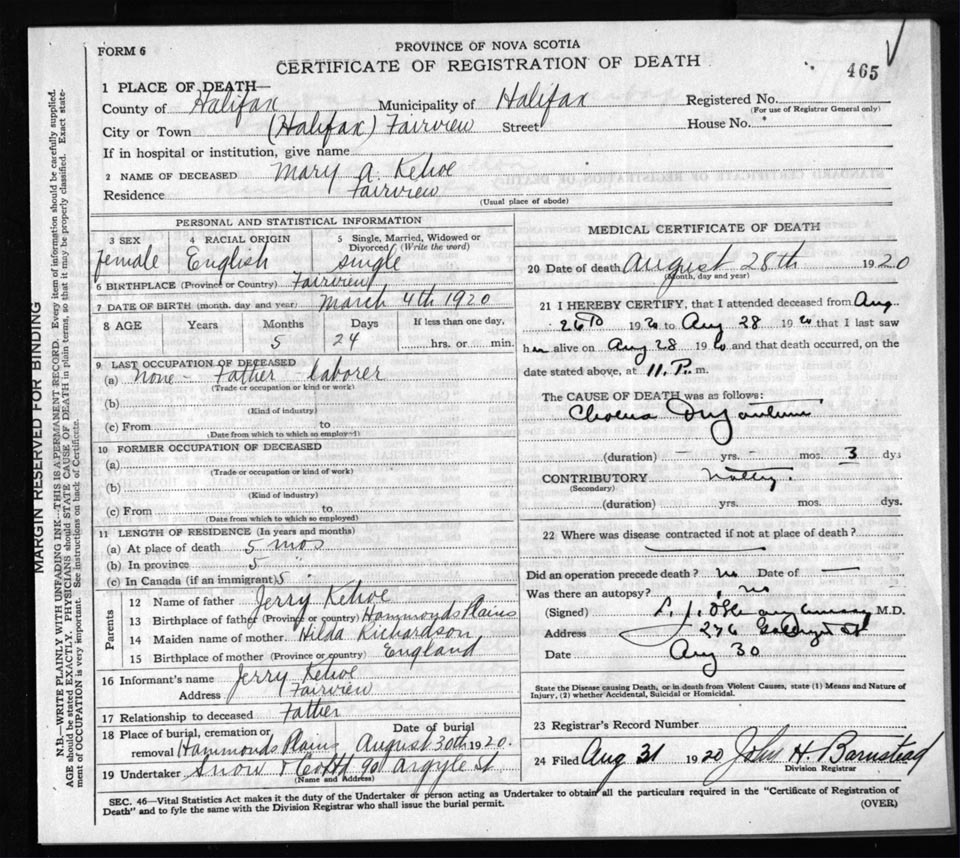 FORM 6
PROVINCE OF NOVA SCOTIA
CERTIFICATE OF REGISTRATION OF DEATH
465
1 PLACE OF DEATH—
County of Halifax Municipality of Halifax Registered No.
(For use of Registrar General only)
City or Town (Halifax) Fairview Street House No.
If in hospital or institution, give name
2 NAME OF DECEASED Mary A. Kehoe
Residence Fairview
(Usual place of abode)
PERSONAL AND STATISTICAL INFORMATION
3 SEX 4 RACIAL ORIGIN 5 Single, Married, Widowed or Divorced (Write the word)
female English single
6 BIRTHPLACE (Province or Country) Fairview
7 DATE OF BIRTH (month, day and year) March 4th 1920
8 AGE Years Months Days If less than one day,
5 24 hrs. or min.
9 LAST OCCUPATION OF DECEASED
(a) None - Father - laborer
(Trade or occupation or kind or work)
(b)
(Kind of industry)
(c) From to
(Date from which to which so employed)
10 FORMER OCCUPATION OF DECEASED
(a)
(Trade or occupation or kind of work)
(b)
(Kind of industry)
(c) From to
(Date from which to which so employed)
11 LENGTH OF RESIDENCE (In years and months)
(a) At place of death 5 mos
(b) In province 5 "
(c) In Canada (if an immigrant) 5 "
Parents
12 Name of father Jerry Kehoe
13 Birthplace of father (Province or country) Hammonds Plains
14 Maiden name of mother Hilda Richardson
15 Birthplace of mother (Province or country) England
16 Informant's name Jerry Kehoe
Address Fairview
17 Relationship to deceased Father
18 Place of burial, cremation or removal Hammonds Plains Date of burial August 30th 1920.
19 Undertaker Snow & Co Ltd 90 Argyle St
(Name and Address)
MEDICAL CERTIFICATE OF DEATH
20 Date of death August 28th 1920
(Month, day and year)
21 I HEREBY CERTIFY, that I attended deceased from Aug
26 to 1920 to Aug 28 1920 that I last saw
her alive on Aug 28 1920 and that death occurred, on the
date stated above, at 11. P. m.
The CAUSE OF DEATH was as follows:
Cholera
(duration) — yrs. — mos. 3 dys
CONTRIBUTORY
(Secondary)
(duration) yrs. mos. dys.
22 Where was disease contracted if not at place of death?
Did an operation precede death? no Date of —
Was there an autopsy? no
(Signed) M.D.
Address 276 St
Date Aug 30
State the Disease causing Death, or in death from Violent Causes, state (1) Means and Nature of
Injury, (2) whether Accidental, Suicidal or Homicidal.
23 Registrar's Record Number
24 Filed Aug 31 1920 John H. Barnstead
Division Registrar
SEC. 46—Vital Statistics Act makes it the duty of the Undertaker or person acting as Undertaker to obtain all the particulars required in the "Certificate of Registration of
Death" and to fyle the same with the Division Registrar who shall issue the burial permit. (OVER)
MARGIN RESERVED FOR BINDING
N.B.—WRITE PLAINLY WITH UNFADING INK—THIS IS A PERMANENT RECORD. Every item of information should be carefully supplied.
AGE should be stated EXACTLY. PHYSICIANS should STATE CAUSE OF DEATH in plain terms, so that it may be properly classified. Exact statement of OCCUPATION is very important. See instructions on back of Certificate.